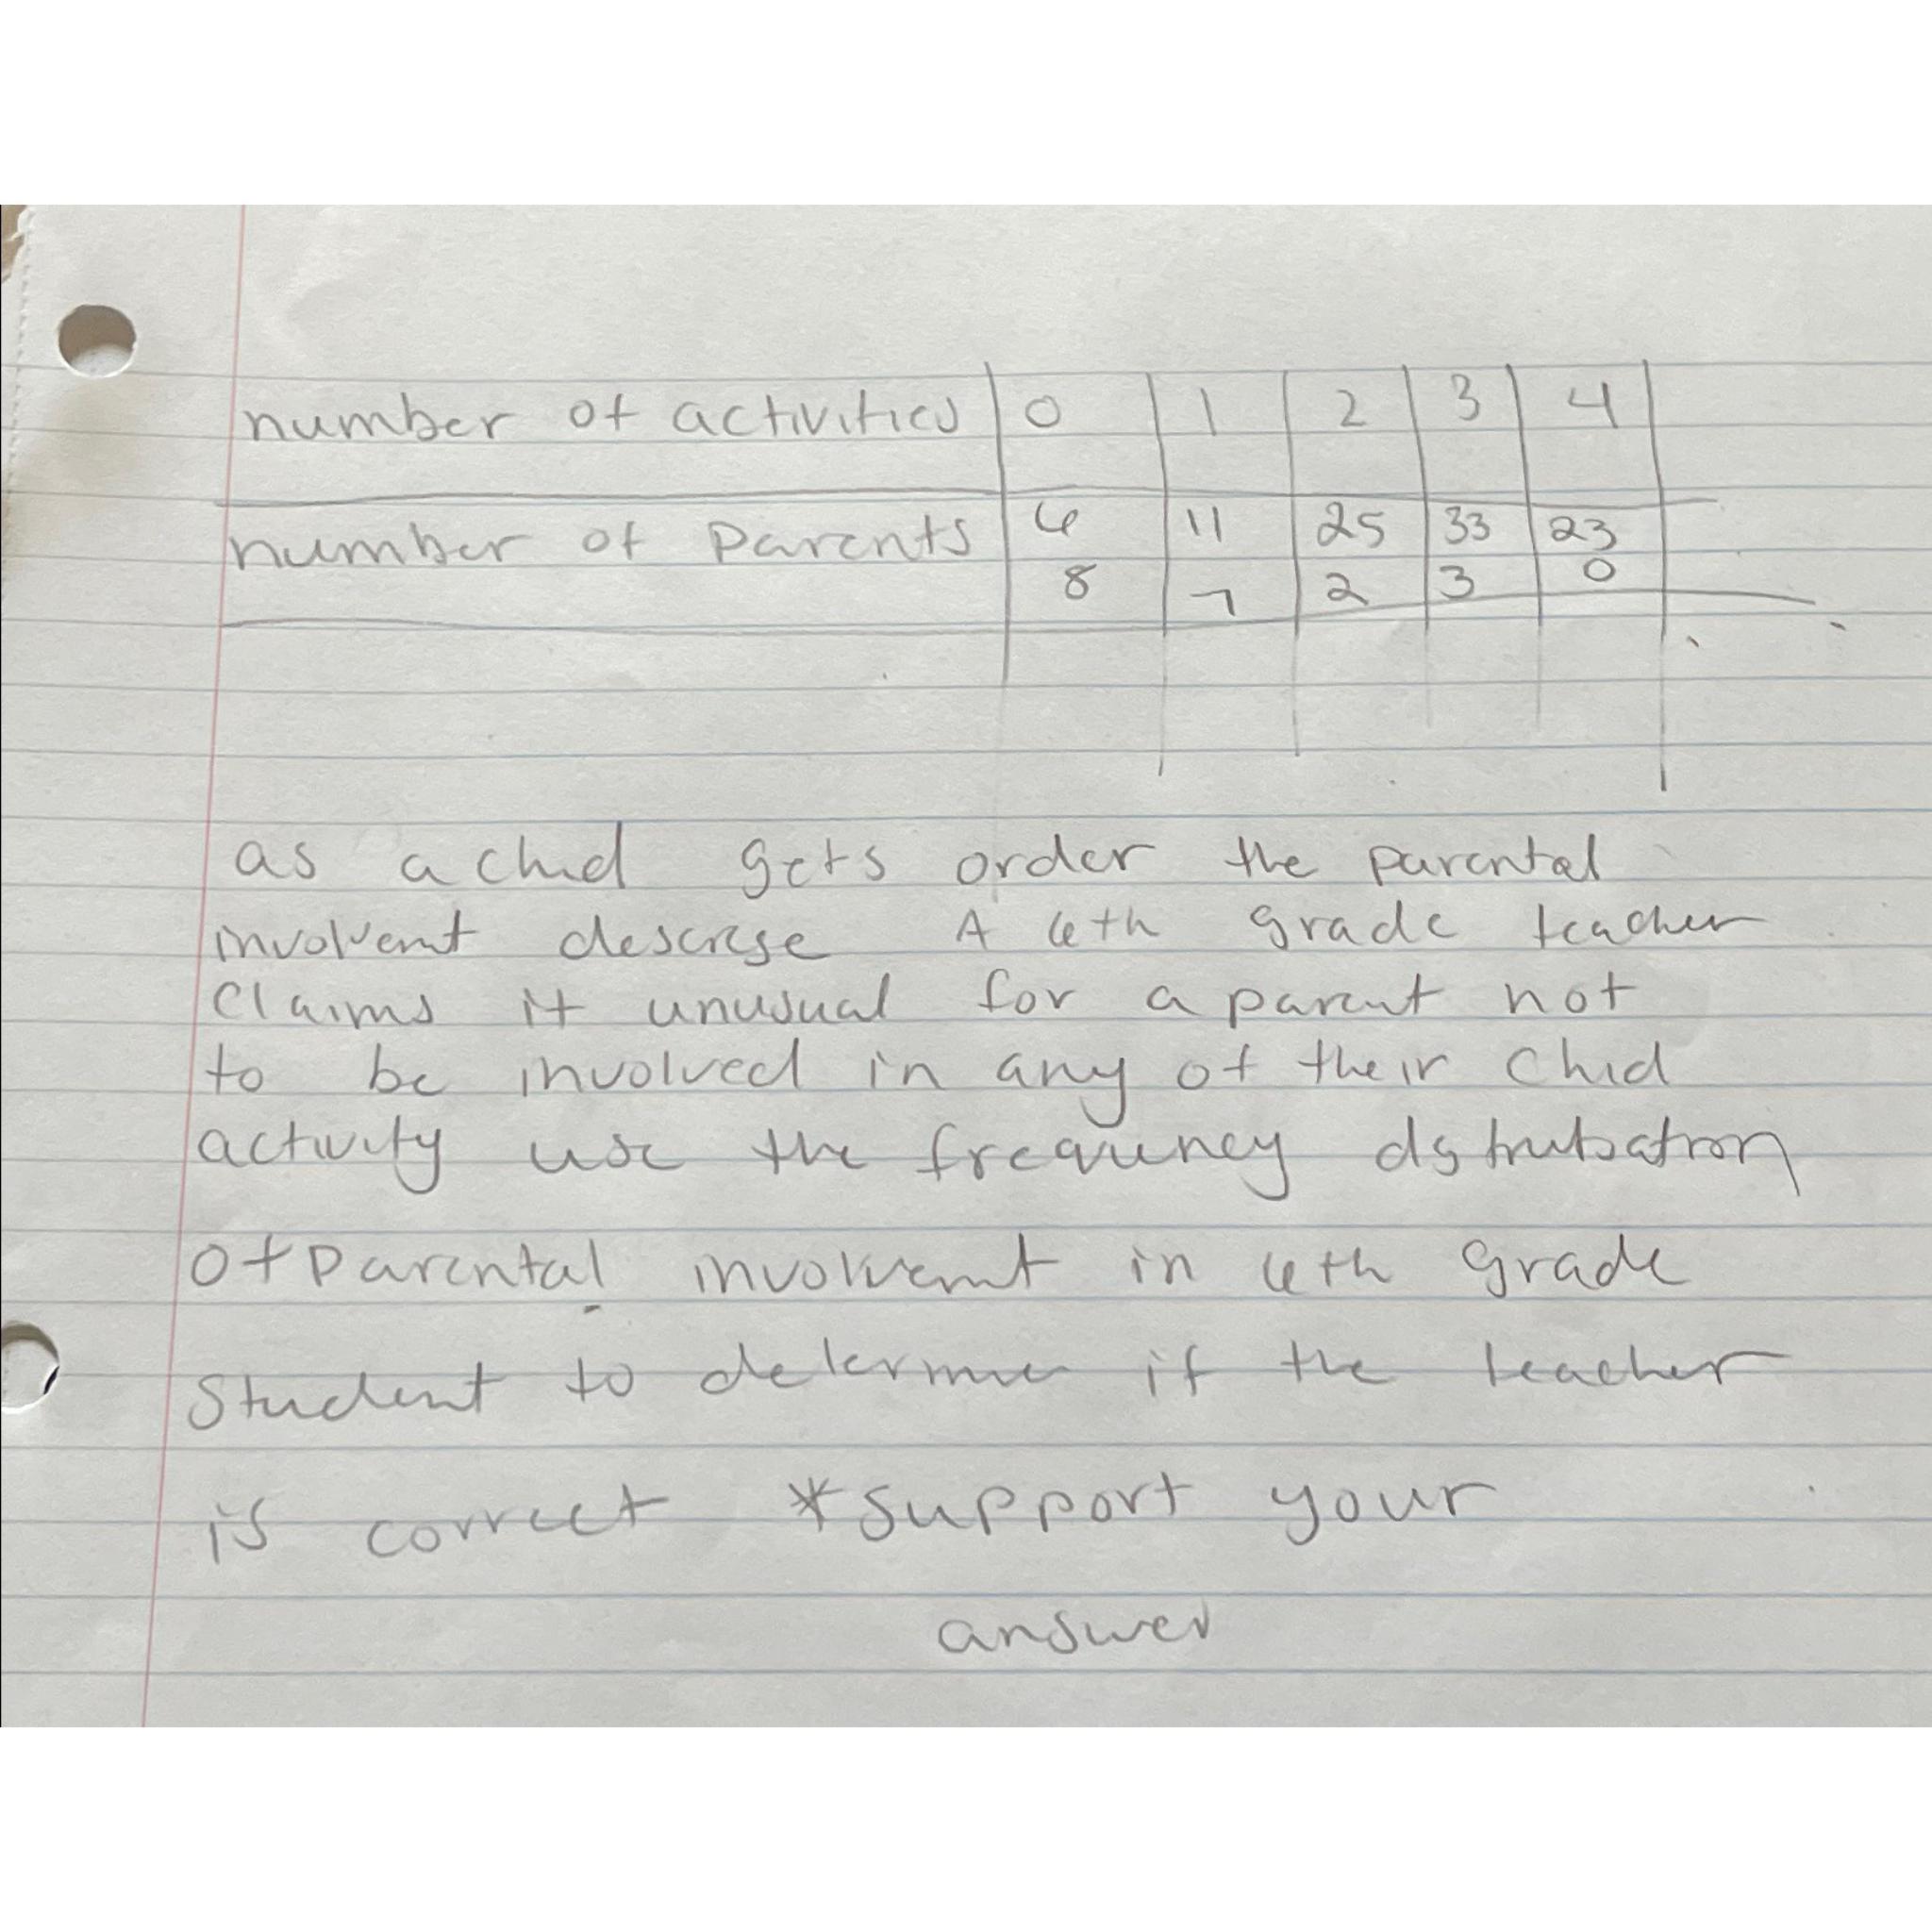 number of activities 0 1 2 3 4
number of Parents 6 11 25 33 23
8 7 2 3 0
as a chid gets order the parental
involvemt descrese A 6th grade teacher
Claims it unusual for a parent not
to be involved in any of their Chid
activity use the frequncy dstrubation
Of Parental involvemt in 6th grade
Student to determin if the teacher
is correct *Support your
answer